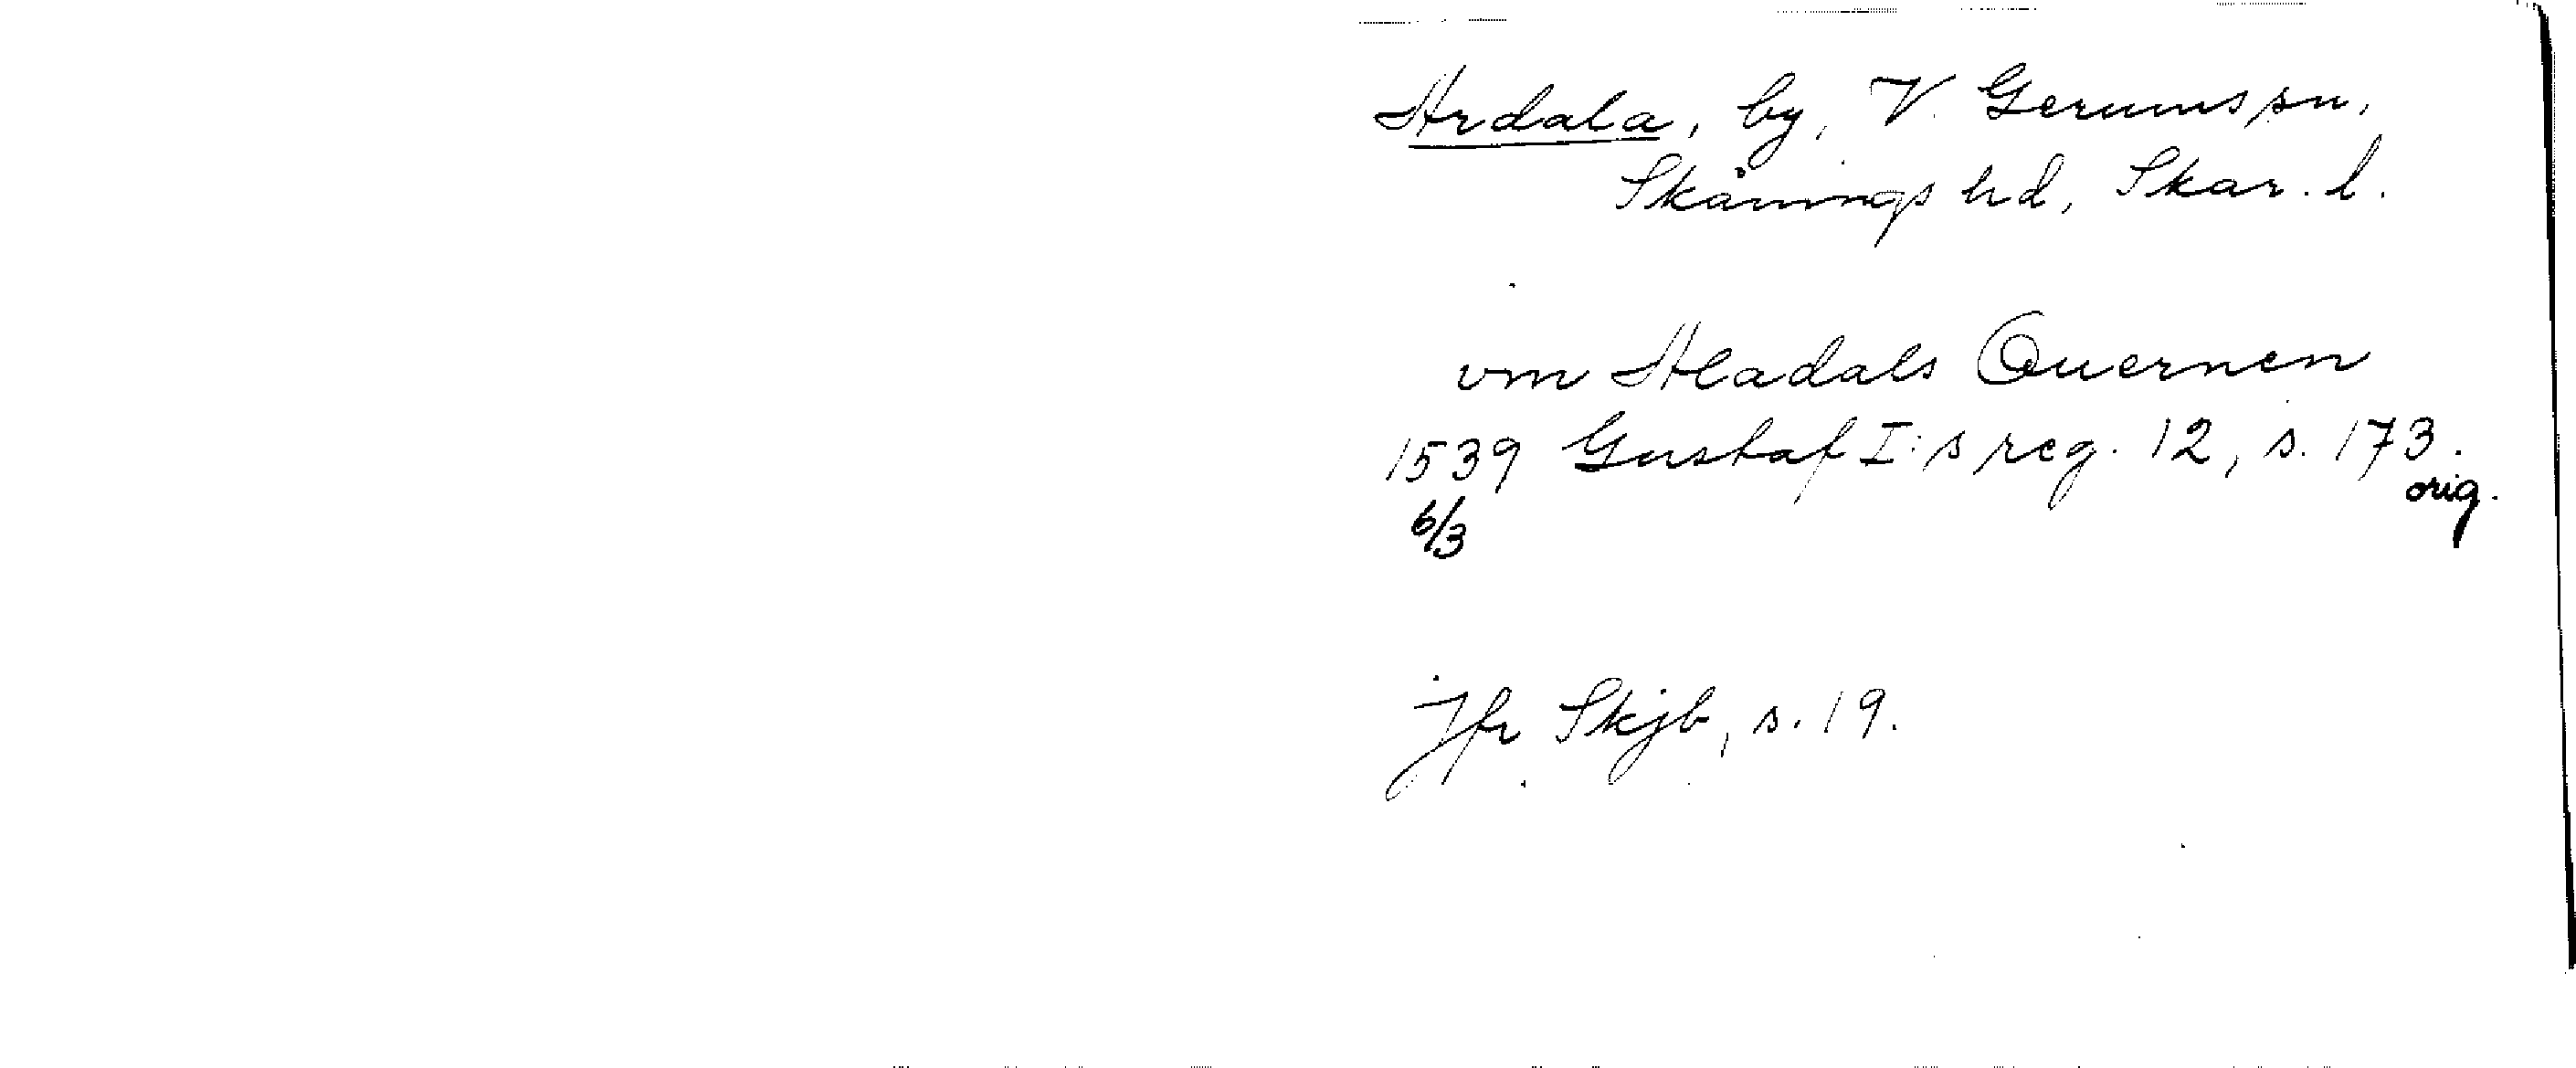 Ardala, by, V. Gerums sn,
Skånings hd, Skar. l.
vm Aladals Quernen
1539 Gustaf I:s reg. 12, s. 173.
6/3 orig.
Jfr Skjb, s. 19.